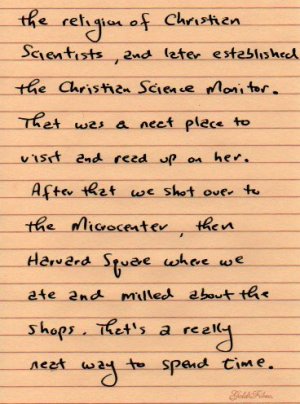 the religion of Christian
Scientists, and later established
the Christian Science Monitor.
That was a neat place to
visit and read up on her.
After that we shot over to
the Microcenter, then
Harvard Square where we
ate and milled about the
shops. That's a really
neat way to spend time.
Gold Fibre.